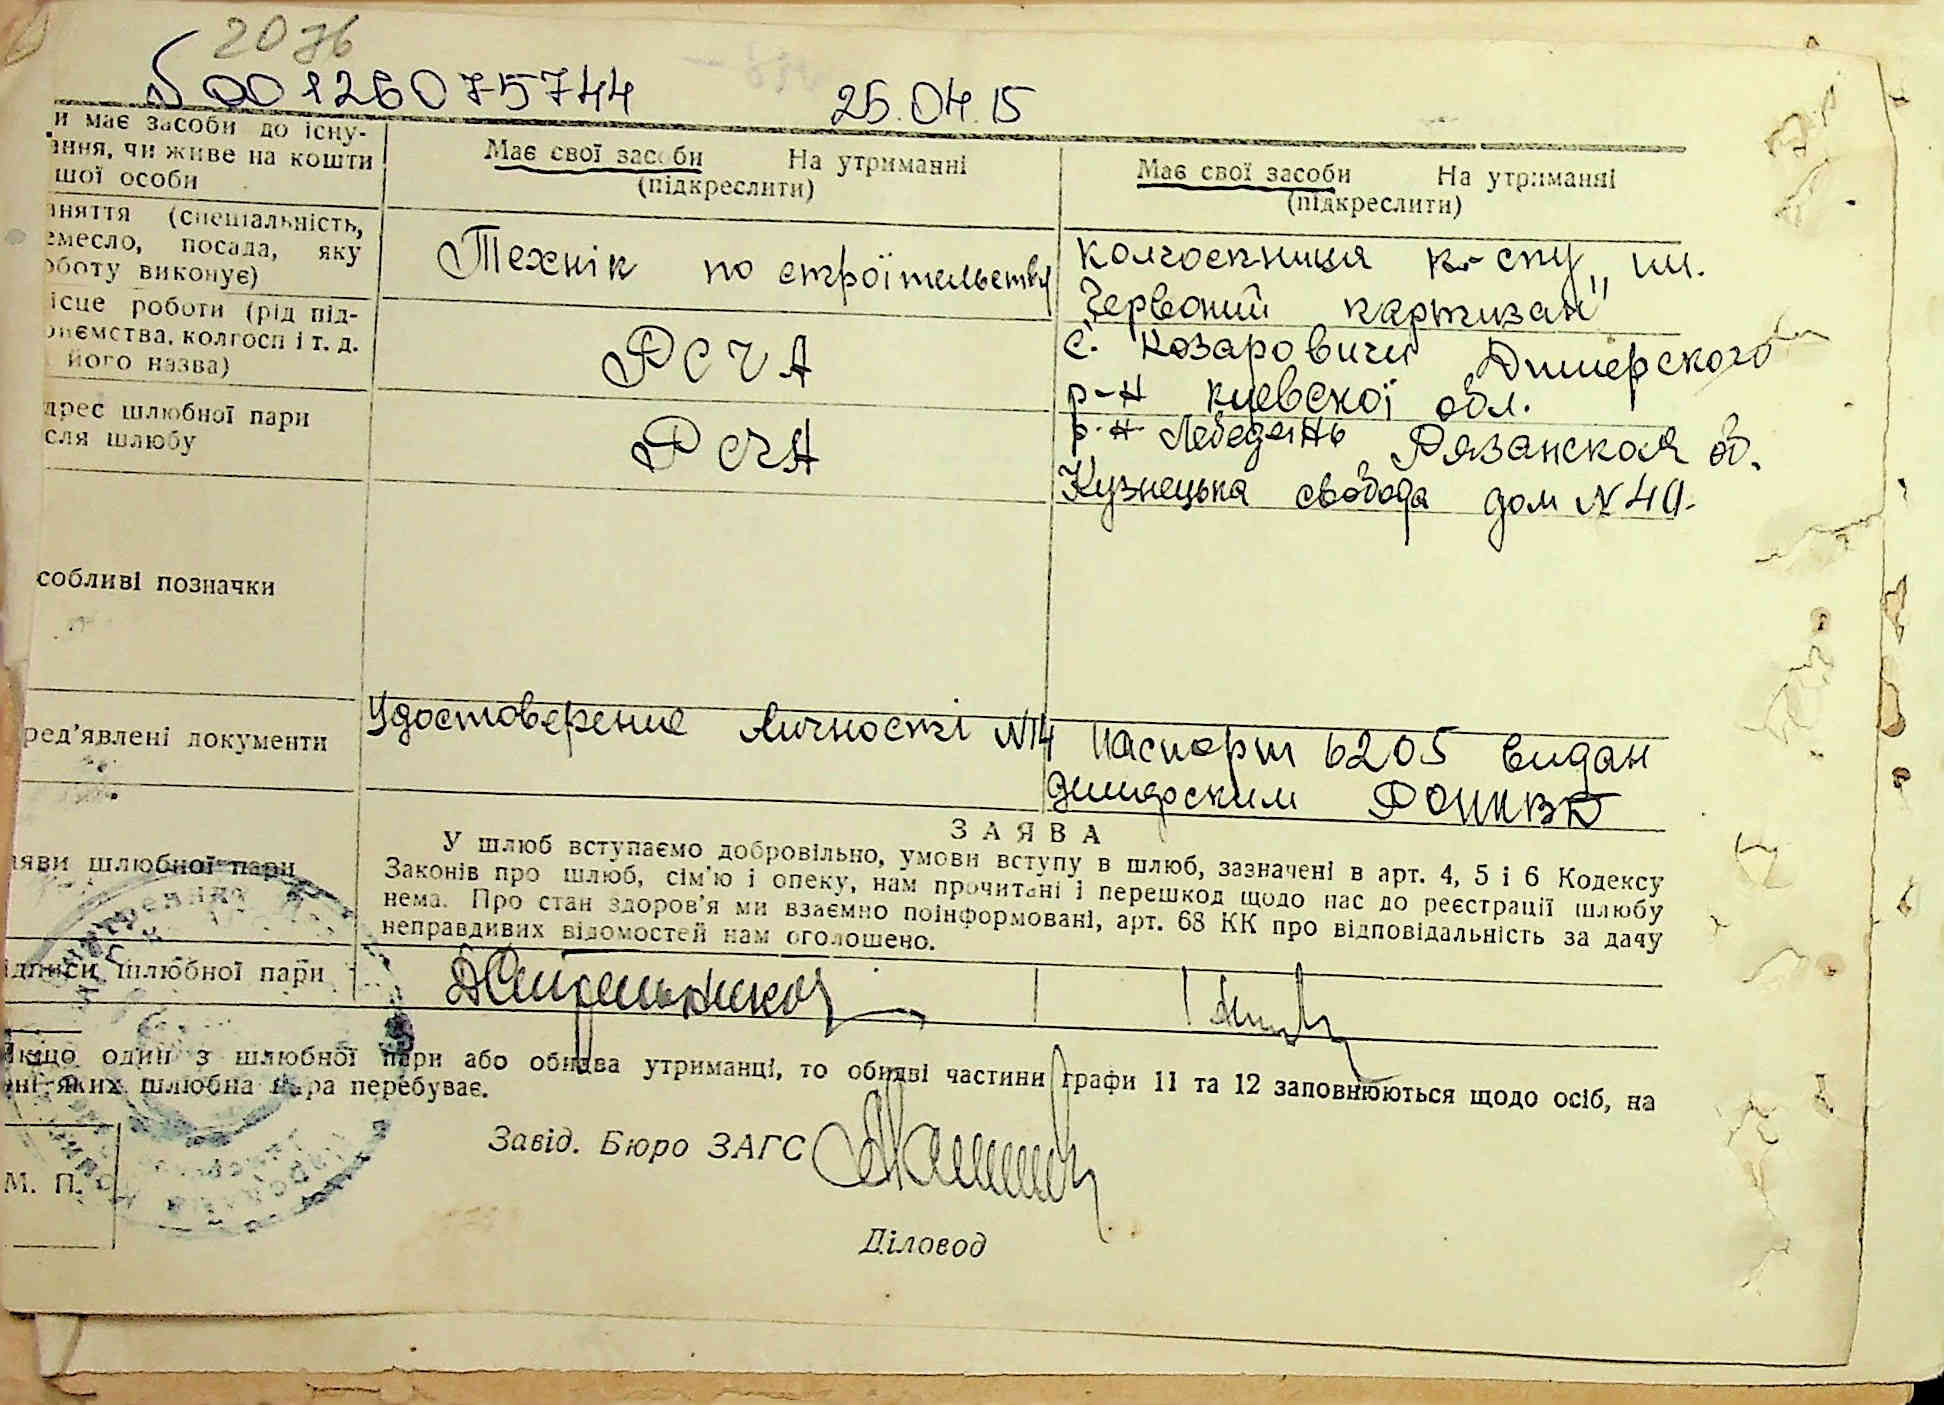 20 76
00126075744 25.04.15
и має засоби до існу-
ання, чи живе на кошти
шої особи
Має свої засоби На утриманні
(підкреслити)
Має свої засоби На утриманні
(підкреслити)
аняття (спеціальність,
емесло, посада, яку
оботу виконує)
Технік по строітельству
колгоспниця к-спу „им.
Червоний партизан"
ісце роботи (рід під-
риємства, колгосп і т. д.
його назва)
РСЧА
с. Козаровичи Димерского
р-н Киевскої обл.
дрес шлюбної пари
сля шлюбу
РСЧА
р-н Лебедянь Рязанская об.
Кузнецька свобода дом № 40.
собливі позначки
ред'явлені документи
Удостоверение личності №14
Паспорт 6205 видан
димерским РОНКВД
аяви шлюбної пари
ЗАЯВА
У шлюб вступаємо добровільно, умови вступу в шлюб, зазначені в арт. 4, 5 і 6 Кодексу
Законів про шлюб, сім'ю і опеку, нам прочитані і перешкод щодо нас до реєстрації шлюбу
нема. Про стан здоров'я ми взаємно поінформовані, арт. 68 КК про відповідальність за дачу
неправдивих відомостей нам оголошено.
ідписи шлюбної пари
Якщо один з шлюбної пари або обидва утриманці, то обидві частини графи 11 та 12 заповнюються щодо осіб, на
ні яких шлюбна пара перебуває.
Завід. Бюро ЗАГС
М. П.
Діловод